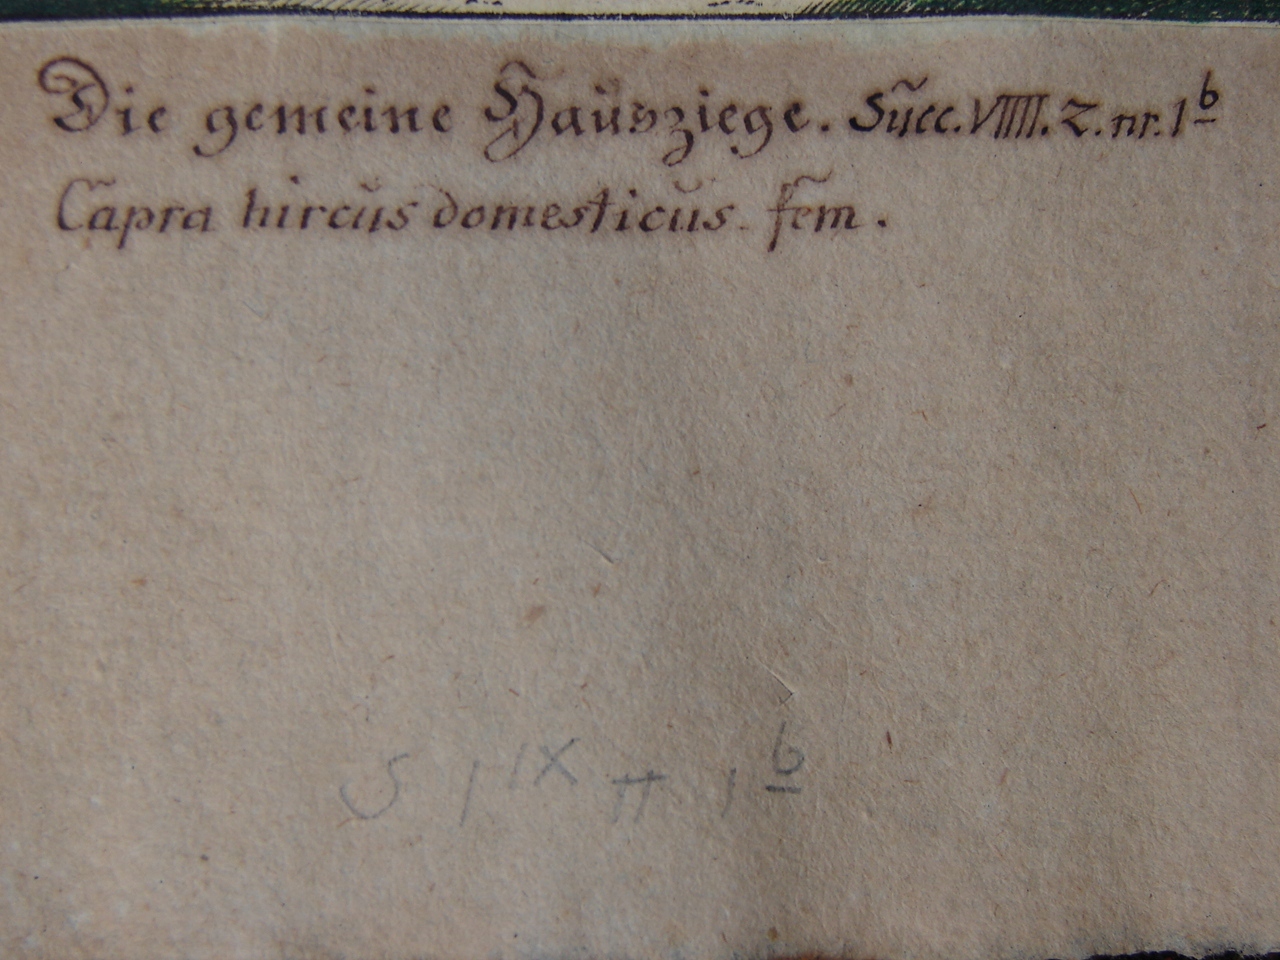 Die gemeine Hausziege. Succ. VIIII. Z. nr. 1b
Capra hircus domesticus. fem.
S I IX II 1b